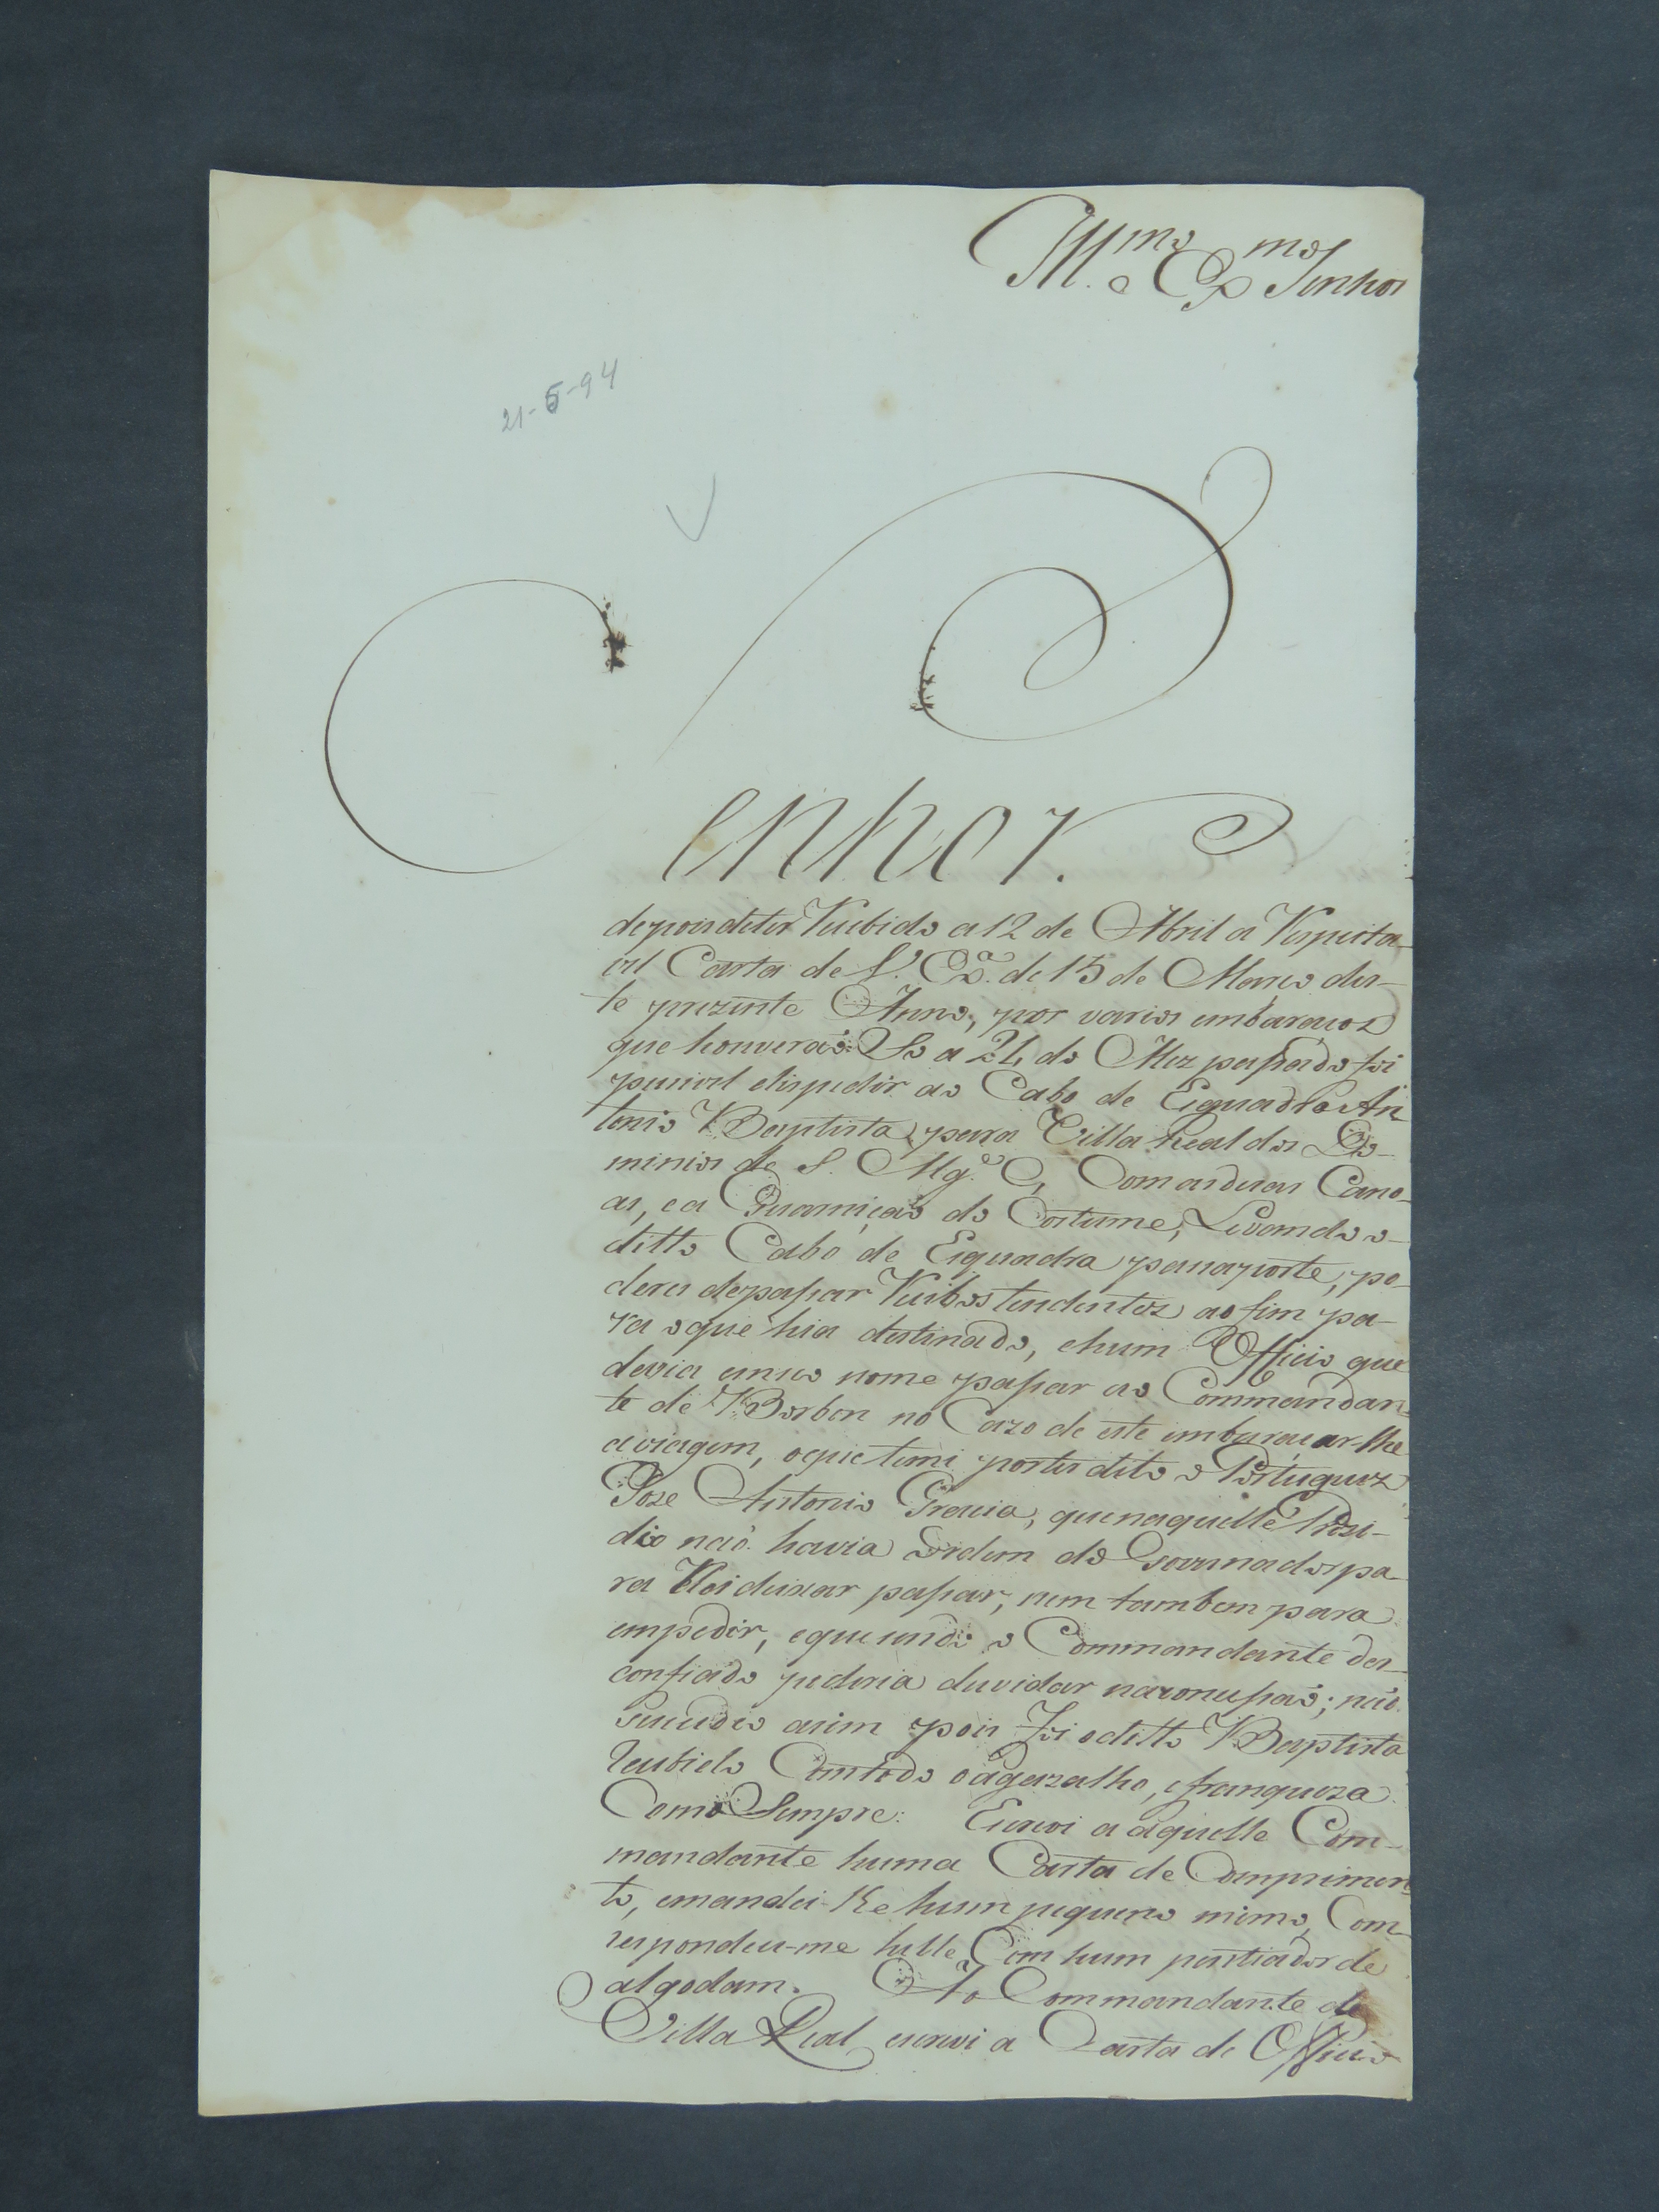 Ill.mo e Ex.mo Senhor
21-5-94
Senhor.
depois deter Recibido a 12 de Abril a Respeita-
vel Carta de V. Ex.a de 15 de Março des-
te prezente Anno, por varios embaraços
que houveraõ: So a 21, do Mez passado foi
pucivel dispedir ao Cabo de Esquadra An
tonio Baptista, para Villa Real dos Do-
minios de S. Mg.e C, Com as duas Cano-
as, e a Guarniçaõ do Costume, Levando o
ditto Cabo de Esquadra passaporte, po-
deres de passar Recibos tendentes ao fim pa-
ra oque hia destinado, ehum Officio que
devia emseo nome passar ao Commandan-
te de Borbon no Cazo de este embaraçar-lhe
a viagem, oque temi porter dito o Portuguez
Joze Antonio Gracia, que naquelle Prezi-
dio naõ havia ordem do Governador pa-
ra Nos deixar passar, nem tambem para
empedir, eque sendo o Commandante des-
confiado pederia duvidar na conceſsaõ; naõ
sucedeo asim pois foi oditto Baptista
Recebido Comtodo o agazalho, e franqueza
Como Sempre: Escrevi a aquelle Com-
mandante huma Carta de Comprimen
to, emandei-lhe hum pequeno mimo, Com-
respondeu-me helle Com hum pentiador de
algodam. Ao Commandante de
Villa Real escrevi a Carta de Officio